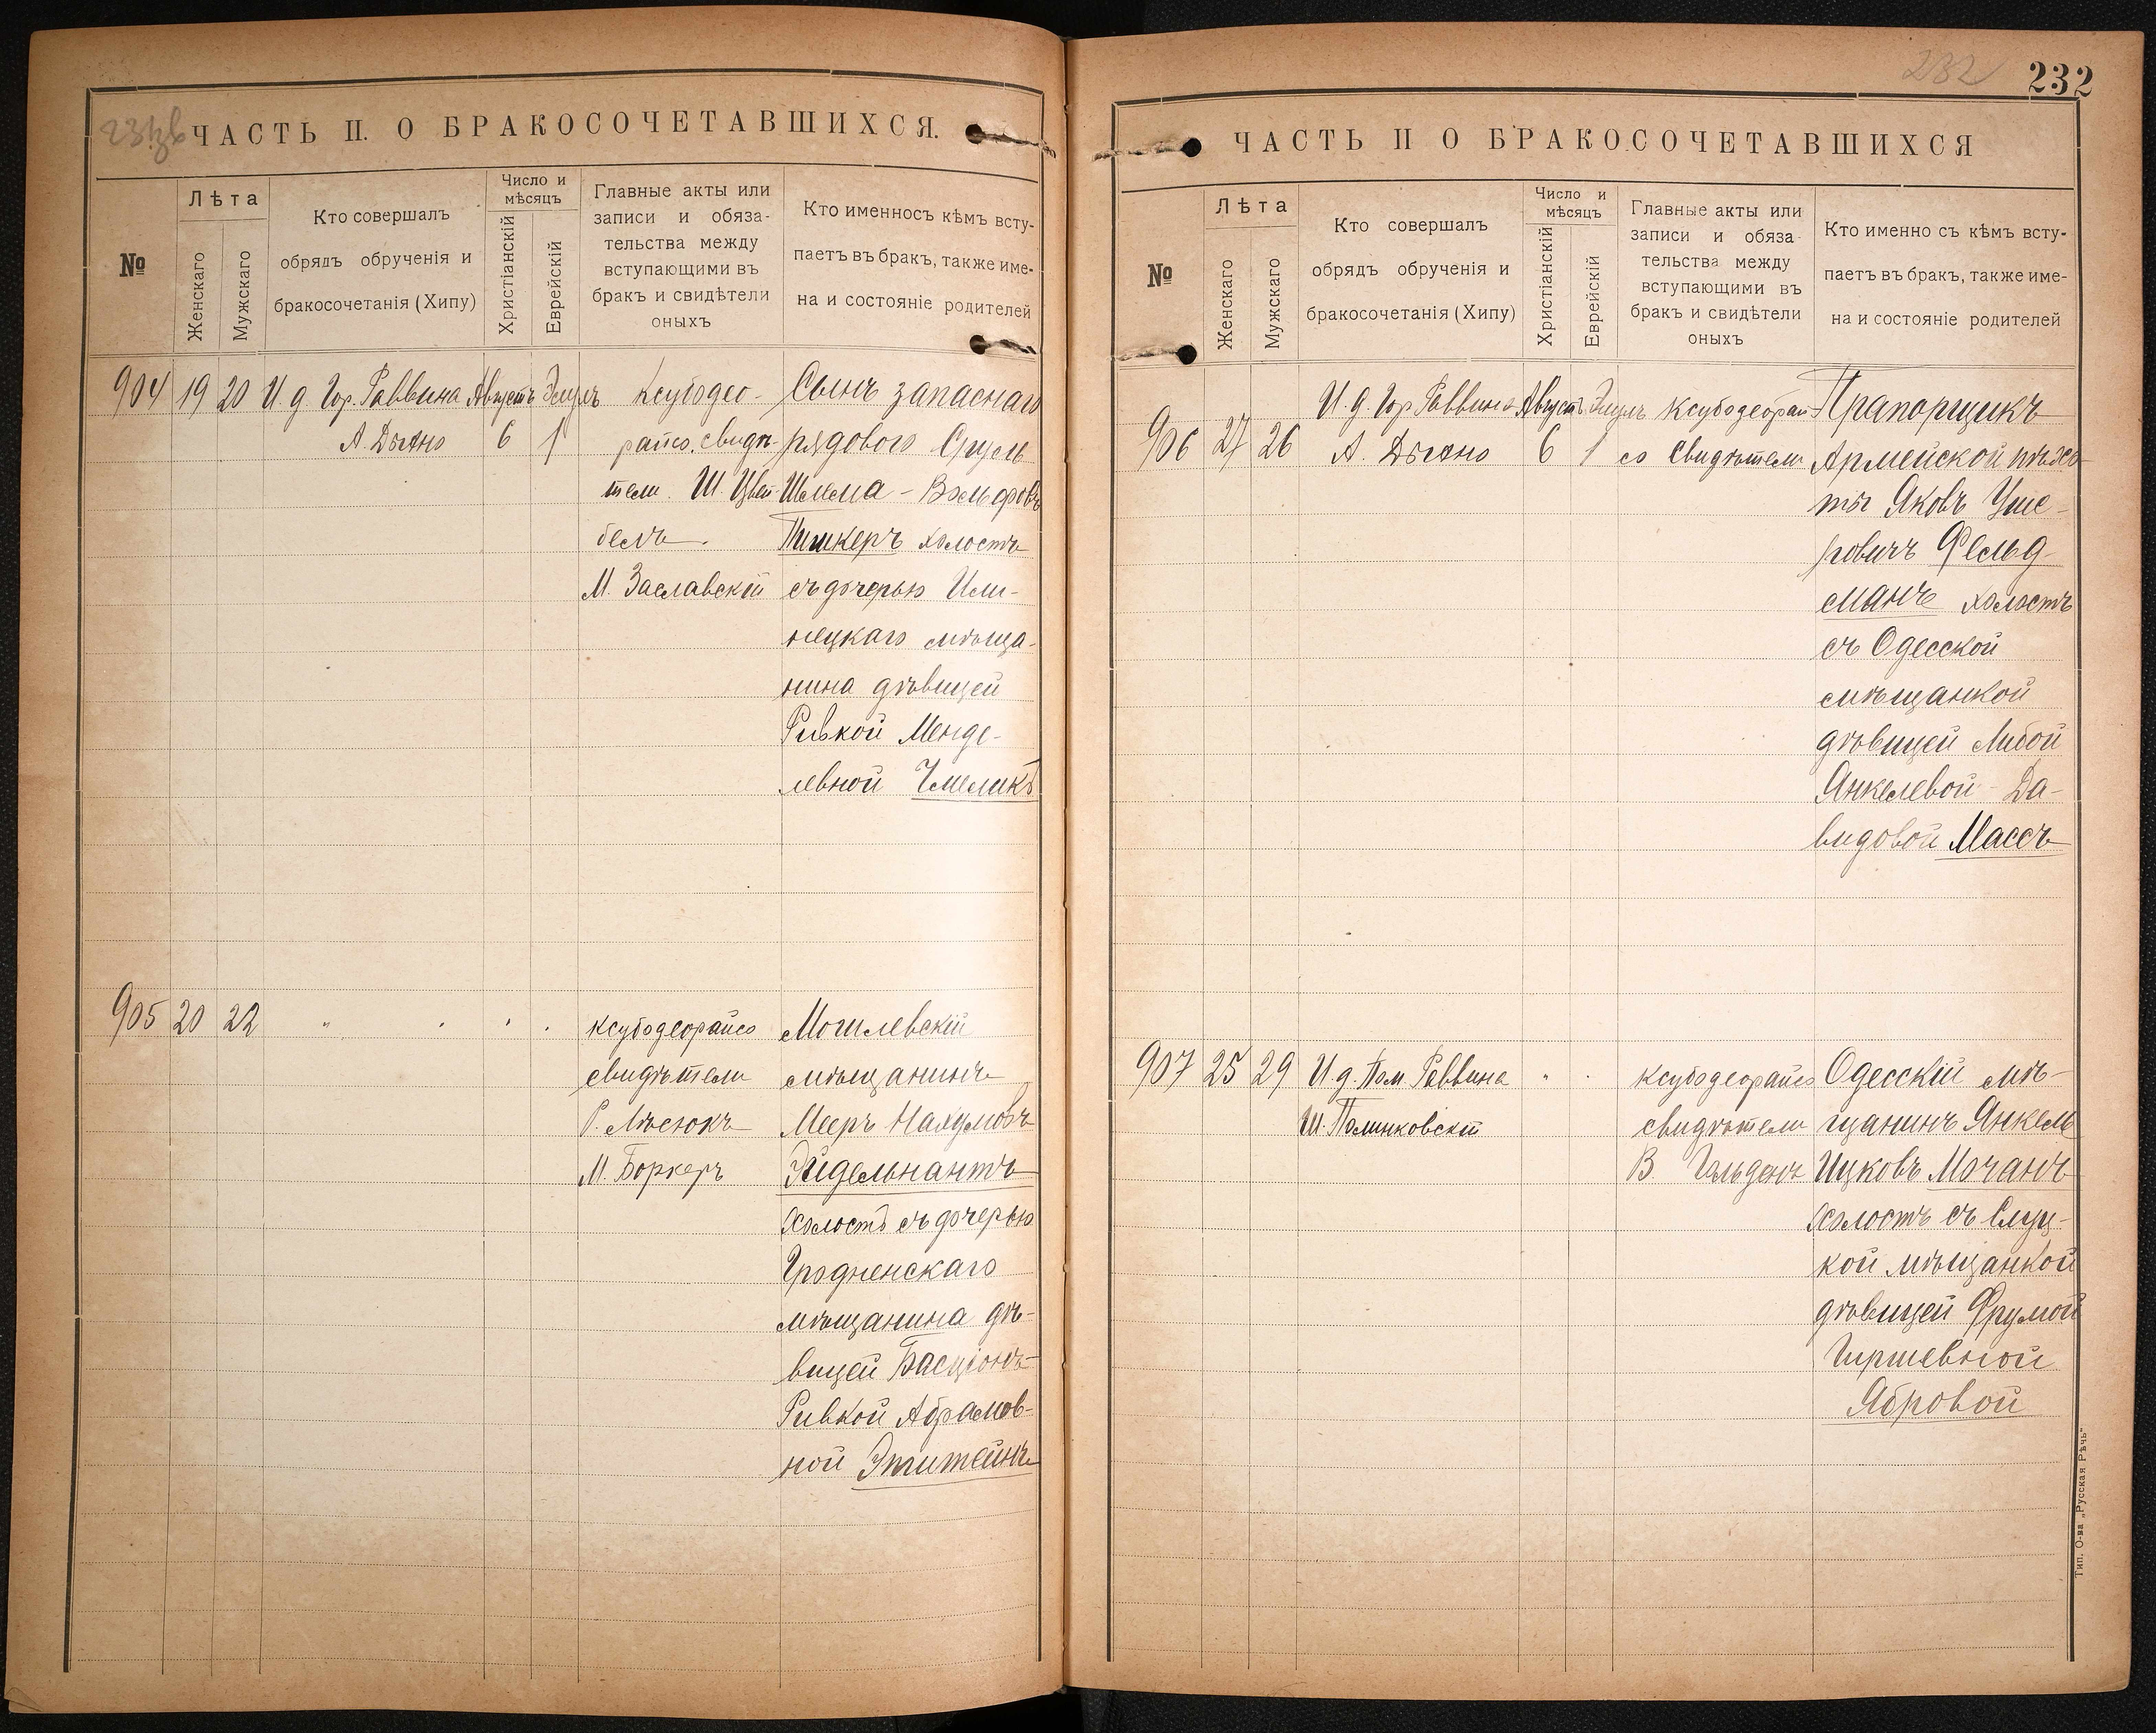 231об
ЧАСТЬ II. О БРАКОСОЧЕТАВШИХСЯ.
№
Лѣта
Женскаго
Мужскаго
Кто совершалъ
обрядъ обрученія и
бракосочетанія (Хипу)
Число и
мѣсяцъ
Христіанскій
Еврейскій
Главные акты или
записи и обяза-
тельства между
вступающими въ
бракъ и свидѣтели
оныхъ
Кто именносъ кѣмъ всту-
паетъ въ бракъ, также име-
на и состояніе родителей
904 19 20 И. д. Гор. Раввина Августъ Элулъ Ксубодео- Сынъ запаснаго
6 1 райсо. свидѣ- рядового Сруль
тели Ш. Цвей- Шлема - Вольфовъ
белъ. Пишкеръ холостъ
М. Заславскій съ дочерью Или-
нецкаго мѣща-
нина дѣвицей
Ривкой Менде-
левной Чмеликъ
905 20 22 " . . . Ксубодеорайсо Могилевскій
свидѣтели мѣщанинъ
Р. Мееръ Нахумовъ
М. Боркеръ Эйдельнантъ
холостъ съ дочерью
Гродненскаго
мѣщанина дѣ-
вицей Басціонъ-
Ривкой Абрамов-
ной Эпштейнъ
232
232
ЧАСТЬ II О БРАКОСОЧЕТАВШИХСЯ
№
Лѣта
Женскаго
Мужскаго
Кто совершалъ
обрядъ обрученія и
бракосочетанія (Хипу)
Число и
мѣсяцъ
Христіанскій
Еврейскій
Главные акты или
записи и обяза-
тельства между
вступающими въ
бракъ и свидѣтели
оныхъ
Кто именно съ кѣмъ всту-
паетъ въ бракъ, также име-
на и состояніе родителей
И. д. Гор. Раввина Августъ Элулъ Ксубодеорай- Прапорщикъ
906 27 26 6 1 со Свидѣтели Армейской пѣхо-
ты Яковъ Уше-
ровичъ Фельд-
манъ холостъ
съ Одесской
мѣщанкой
дѣвицей Либой
Янкелевой - Да-
видовой Массъ
907 25 29 И. д. Пом. Раввина " . Ксубодеорайсо Одесскій мѣ-
Ш. Полинковскій свидѣтели щанинъ Янкель
В. Ицковъ Мочанъ
холостъ съ Слуц-
кой мѣщанкой
дѣвицей Фрумой
Гиршевной
Ябровой
Тип. О-ва „Русская Рѣчь"